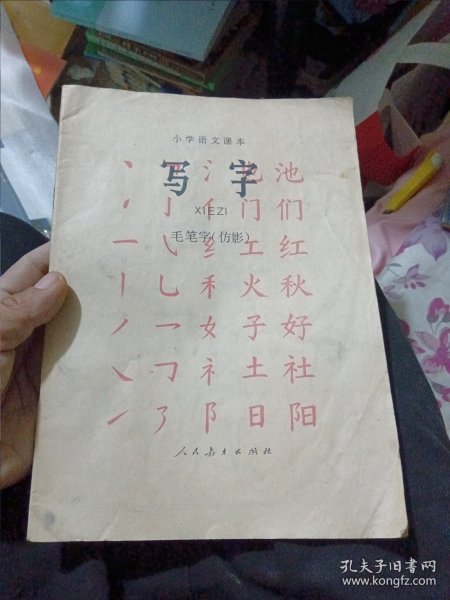 小学语文课本
写字
XIEZI
毛笔字(仿影)
丶 氵 也 池
亅 亻 门 们
一 ㇂ 纟 工 红
丨 乚 禾 火 秋
丿 乛 女 子 好
㇏ 𠃌 礻 土 社
㇀ 阝 日 阳
人民教育出版社
孔夫子旧书网
www.kongfz.com